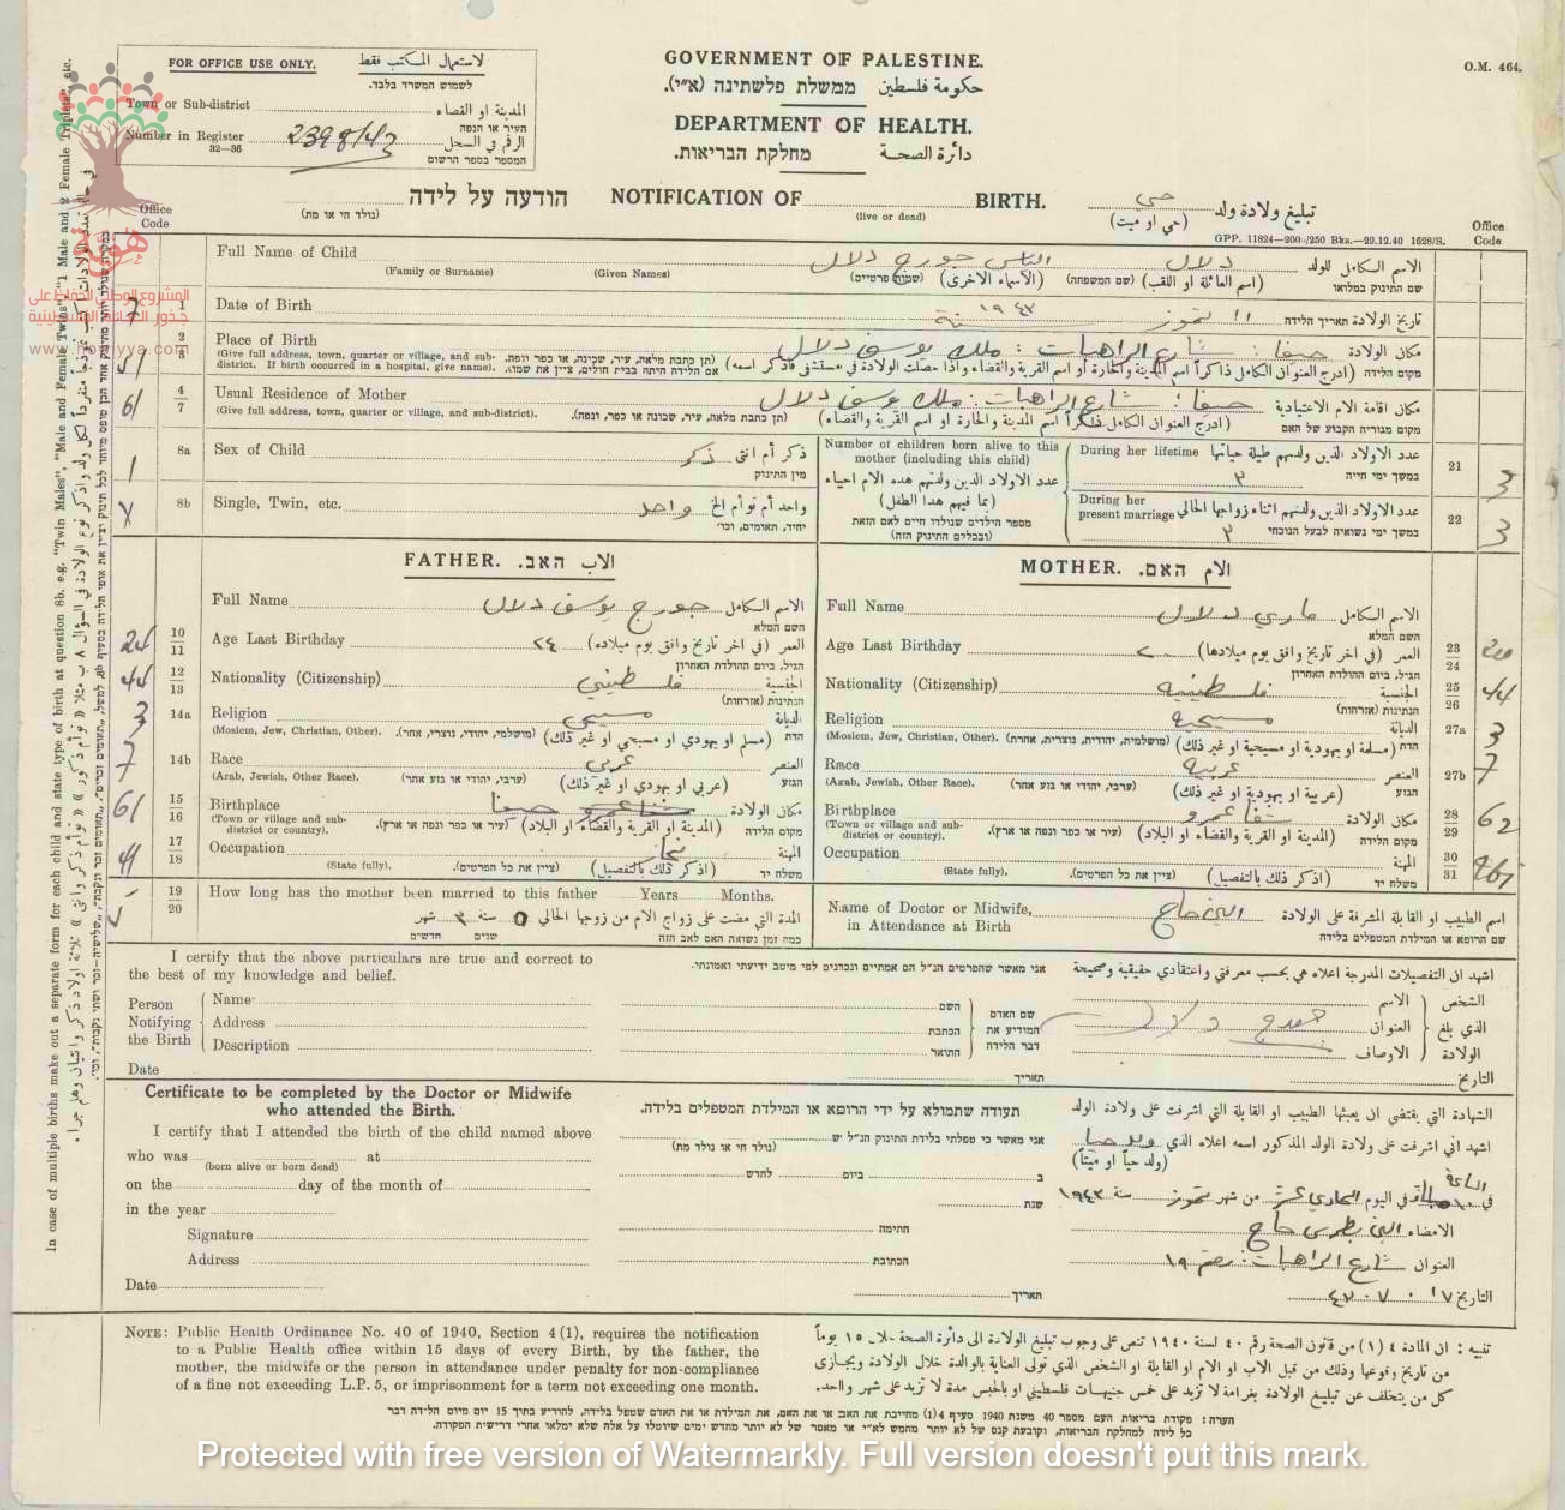 GOVERNMENT OF PALESTINE.
حكومة فلسطين ממשלת פלשתינה (א״י).
DEPARTMENT OF HEALTH.
دائرة الصحة מחלקת הבריאות.
O.M. 464.
FOR OFFICE USE ONLY. لاستعمال المكتب فقط
לשמוש המשרד בלבד.
Town or Sub-district المدينة او القضاء
העיר או הנפה
Number in Register 2398/43 الرقم في السجل
32—36 המספר בספר הרשום
הודעה על לידה NOTIFICATION OF BIRTH. تبليغ ولادة ولد حي
(נולד חי או מת) (live or dead) (حي او ميت)
GPP. 11824—200/250 Bks.—29.12.40 1628/S.
Office Code Office Code
Full Name of Child الاسم الكامل للولد دلال الياس جورج دلال
(Family or Surname) (Given Names) (الأسماء الاخرى) (שמות פרטיים) (اسم العائلة او اللقب) (שם המשפחה) שם התינוק במלואו
7 1 Date of Birth تاريخ الولادة תאריך הלידה ١١ تموز سنة ١٩٤٣
2 3 Place of Birth مكان الولادة حيفا : شارع الراهبات : ملك يوسف دلال
(Give full address, town, quarter or village, and sub-district. If birth occurred in a hospital, give name). מקום הלידה
61 4 7 Usual Residence of Mother مكان اقامة الام الاعتيادية حيفا : شارع الراهبات : ملك يوسف دلال
(Give full address, town, quarter or village, and sub-district). (תן כתבת מלאה, עיר, שכונה או כפר, ונפה). (ادرج العنوان الكامل ذاكراً اسم المدينة والحارة او اسم القرية والقضاء) מקום מגוריה הקבוע של האם
1 8a Sex of Child ذكر أم انثى ذكر
מין התינוק
8b Single, Twin, etc. واحد أم توأم الخ واحد
יחיד, תאומים, וכו׳
Number of children born alive to this mother (including this child)
عدد الاولاد الذين ولدتهم هذه الام احياء
(بما فيهم هذا الطفل)
מספר הילדים שנולדו חיים לאם הזאת
(ובכללם התינוק הזה)
During her lifetime عدد الاولاد الذين ولدتهم طيلة حياتها 21 3
במשך ימי חייה ٣
During her present marriage عدد الاولاد الذين ولدتهم اثناء زواجها الحالي 22 3
במשך ימי נשואיה לבעל הנוכחי ٣
FATHER. الاب האב.
24 10 11 44 12 13 3 14a 7 14b 61 15 16 17 18
Full Name الاسم الكامل جورج يوسف دلال
השם המלא
Age Last Birthday العمر (في اخر تاريخ وافق يوم ميلاده) ٢٤
הגיל, ביום ההולדת האחרון
Nationality (Citizenship) الجنسية فلسطيني
הנתינות (אזרחות)
Religion الديانة مسيحي
(Moslem, Jew, Christian, Other). (מושלמי, יהודי, נוצרי, אחר). (مسلم او يهودي او مسيحي او غير ذلك) הדת
Race العنصر عربي
(Arab, Jewish, Other Race). (ערבי, יהודי או גזע אחר) (عربي او يهودي او غير ذلك) הגזע
Birthplace مكان الولادة شفا عمرو حيفا
(Town or village and sub-district or country). (עיר או כפר ונפה או ארץ). (المدينة او القرية والقضاء او البلاد) מקום הלידה
Occupation المهنة
(State fully). (ציין את כל הפרטים). (اذكر ذلك بالتفصيل) משלח יד
MOTHER. الام האם.
Full Name الاسم الكامل ماري دلال
השם המלא
Age Last Birthday العمر (في اخر تاريخ وافق يوم ميلادها) ٢٠ 23 24 20
הגיל, ביום ההולדת האחרון
Nationality (Citizenship) الجنسية فلسطينيه 25 26 44
הנתינות (אזרחות)
Religion الديانة مسيحيه 27a 3
(Moslem, Jew, Christian, Other). (מושלמית, יהודית, נוצרית, אחרת). (مسلمة او يهودية او مسيحية او غير ذلك) הדת
Race العنصر عربيه 27b 7
(Arab, Jewish, Other Race). (ערבי, יהודי או גזע אחר) (عربية او يهودية او غير ذلك) הגזע
Birthplace مكان الولادة شفا عمرو 28 29 62
(Town or village and sub-district or country). (עיר או כפר ונפה או ארץ). (المدينة او القرية والقضاء او البلاد) מקום הלידה
Occupation المهنة 30 31
(State fully). (ציין את כל הפרטים). (اذكر ذلك بالتفصيل) משלח יד
19 20 How long has the mother been married to this father Years Months.
المدة التي مضت على زواج الام من زوجها الحالي ٥ سنة ٣ شهر
כמה זמן נשואה האם לאב הזה שנים חדשים
Name of Doctor or Midwife, in Attendance at Birth اسم الطبيب او القابلة المشرفة على الولادة
שם הרופא או המילדת המטפלים בלידה
I certify that the above particulars are true and correct to
the best of my knowledge and belief.
אני מאשר שהפרטים הנ״ל הם אמתיים ונכונים לפי מיטב ידיעתי ואמונתי.
اشهد ان التفصيلات المدرجة اعلاه هي بحسب معرفتي واعتقادي حقيقية وصحيحة
Person Notifying the Birth
Name השם الاسم
Address הכתבת العنوان جورج دلال
Description התואר الاوصاف
שם האדם המודיע את דבר הלידה
الشخص الذي بلغ الولادة
Date תאריך التاريخ
Certificate to be completed by the Doctor or Midwife
who attended the Birth.
תעודה שתמולא על ידי הרופא או המילדת המטפלים בלידה.
الشهادة التي يقتضي ان يعبئها الطبيب او القابلة التي اشرفت على ولادة الولد
I certify that I attended the birth of the child named above
who was at
(born alive or born dead)
on the day of the month of
in the year
Signature
Address
Date
אני מאשר כי טפלתי בלידת התינוק הנ״ל יש
(נולד חי או נולד מת)
ב ביום לחדש
שנת
חתימה
הכתובת
תאריך
اشهد اني اشرفت على ولادة الولد المذكور اسمه اعلاه الذي ولد حيا
(ولد حياً او ميتاً)
في الساعة ١٠ في اليوم الحادي عشر من شهر تموز سنة ١٩٤٣
الامضاء بطرس حاج
العنوان شارع الراهبات : رقم ١٩
التاريخ ١٧ . ٧ . ٤٣
NOTE: Public Health Ordinance No. 40 of 1940, Section 4(1), requires the notification
to a Public Health office within 15 days of every Birth, by the father, the
mother, the midwife or the person in attendance under penalty for non-compliance
of a fine not exceeding L.P. 5, or imprisonment for a term not exceeding one month.
تنبيه : ان المادة ٤ (١) من قانون الصحة رقم ٤٠ لسنة ١٩٤٠ تنص على وجوب تبليغ الولادة الى دائرة الصحة خلال ١٥ يوماً
من تاريخ وقوعها وذلك من قبل الاب او الام او القابلة او الشخص الذي تولى العناية بالوالدة خلال الولادة ويجازى
كل من يتخلف عن تبليغ الولادة بغرامة لا تزيد على خمس جنيهات فلسطيني او بالحبس مدة لا تزيد على شهر واحد.
הערה : פקודת בריאות העם מספר 40 משנת 1940 סעיף 4(1) מחייבת את האב או את האם, את המילדת או את האדם שטפל בלידה, להודיע בתוך 15 יום מיום הלידה דבר
כל לידה למחלקת הבריאות, וקובעת קנס של לא יותר מחמש לא״י או מאסר של לא יותר מחדש ימים שיוטלו על אלה שלא ימלאו אחרי דרישת הפקודה.
In case of multiple births make out a separate form for each child and state type of birth at question 8b. e.g. "Twin Males", "Male and Female Twins", "1 Male and 2 Female Triplets", etc.
هوية
المشروع الوطني للحفاظ على
جذور العائلة الفلسطينية
www.howiyya.com
Protected with free version of Watermarkly. Full version doesn't put this mark.